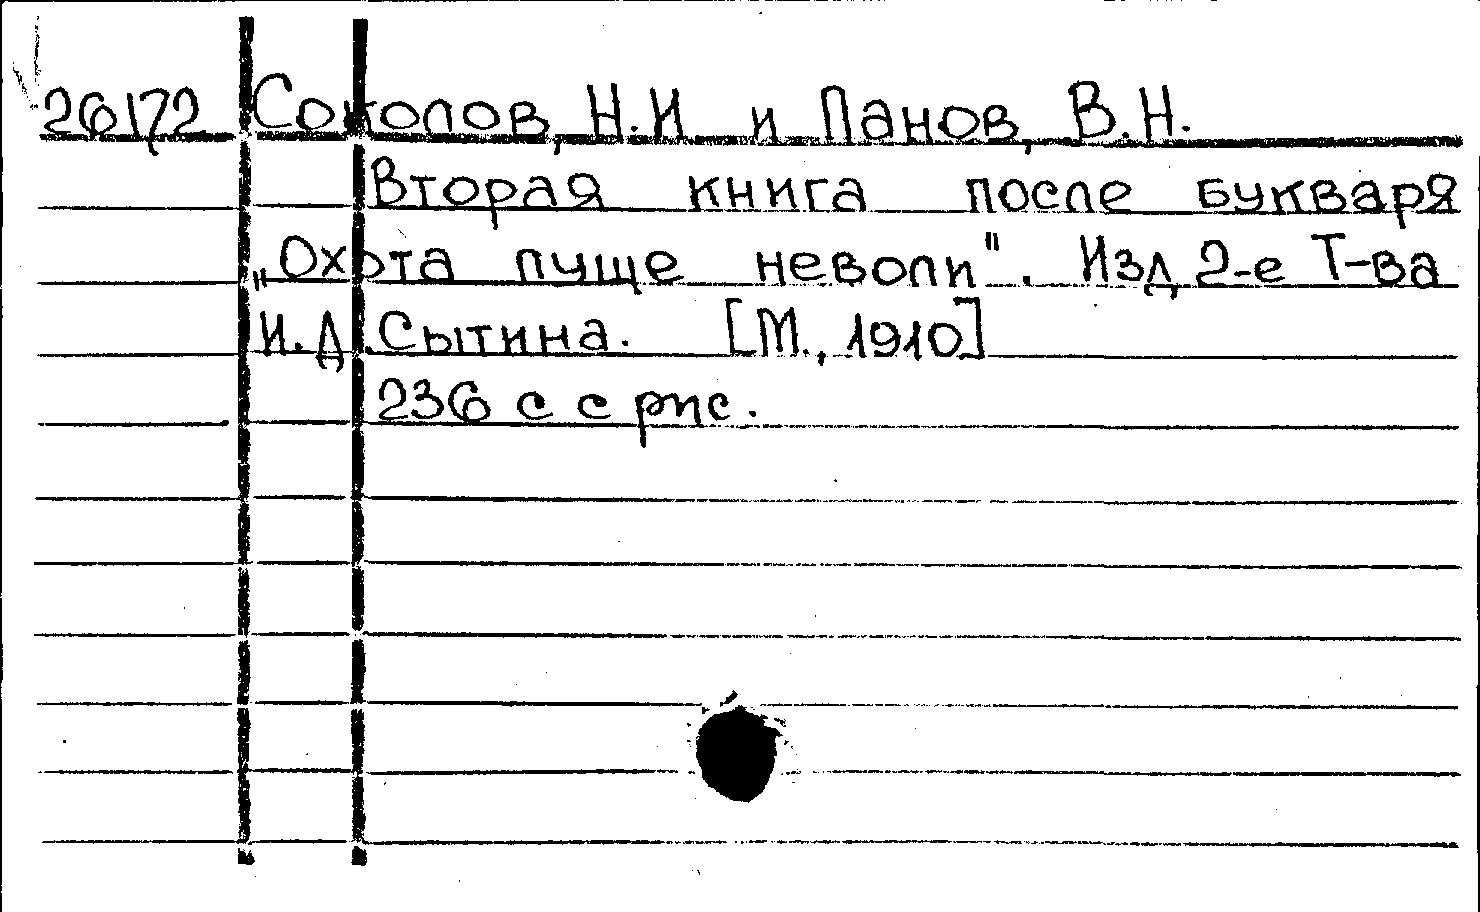 26172 Соколов, Н.И и Панов, В.Н.
Вторая книга после букваря
„Охота пуще неволи". Изд 2-е Т-ва
И.Д.Сытина. [М., 1910]
236 с с рис.